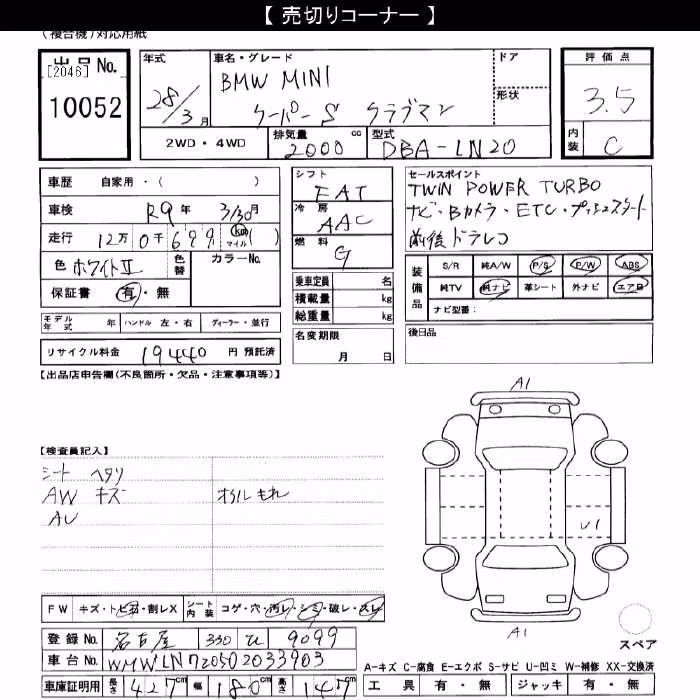 【 売切りコーナー 】
(複合機) 対応用紙
出品 No.
[2046]
10052
年式
28/3月
車名・グレード
BMW MINI
クーパーS クラブマン
ドア
形状
2WD・4WD
排気量 2000 cc
型式 DBA-LN20
評価点
3.5
内装 C
車歴 自家用・( )
車検 R9年 3/30月
走行 12万 0千 699 km マイル ( )
色 ホワイトII 色替 カラーNo.
保証書 有・無
モデル年式 年 ハンドル 左・右 ディーラー・並行
リサイクル料金 19440 円 預託済
シフト
FAT
冷房
AAC
燃料
G
乗車定員 名
積載量 kg
総重量 kg
名変期限
月 日
セールスポイント
TWIN POWER TURBO
ナビ・Bカメラ・ETC・プッシュスタート
前後ドラレコ
装備品
S/R 純A/W P/S P/W ABS
純TV 純ナビ 革シート 外ナビ エアB
ナビ型番:
後日品
【出品店申告欄(不良箇所・欠品・注意事項等)】
【検査員記入】
シート ヘタリ
AW キズ オイルもれ
AU
A1
U1
A1
スペア
FW キズ・トビ石・割レX シート内装 コゲ・穴・汚レ・シミ・破レ・スレ
登録 No. 名古屋 330 ひ 9099
車台 No. WMWLN720502033903
車庫証明用 長さ 427cm 幅 180cm 高さ 147cm
A-キズ C-腐食 E-エクボ S-サビ U-凹ミ W-補修 XX-交換済
工具 有・無 ジャッキ 有・無